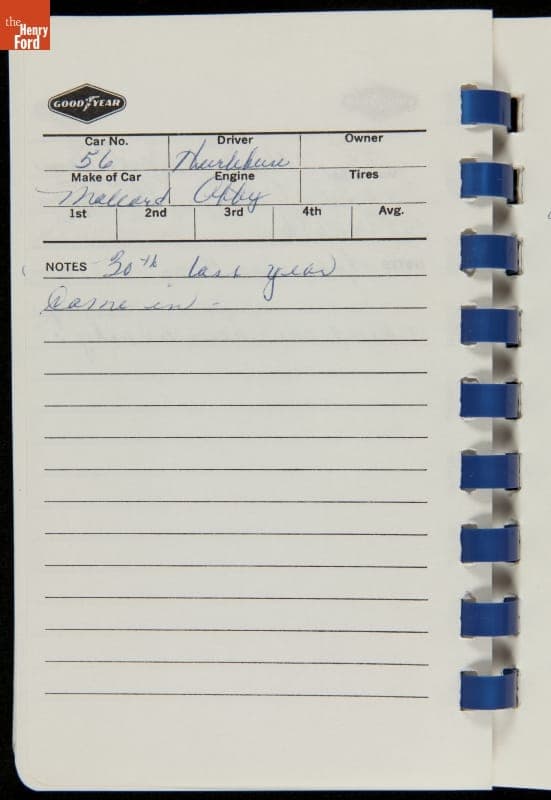 the
Henry
Ford
GOOD YEAR
Car No. Driver Owner
56 Hurtubise
Make of Car Engine Tires
Mallard Offy
1st 2nd 3rd 4th Avg.
NOTES 30th last year
Came in -